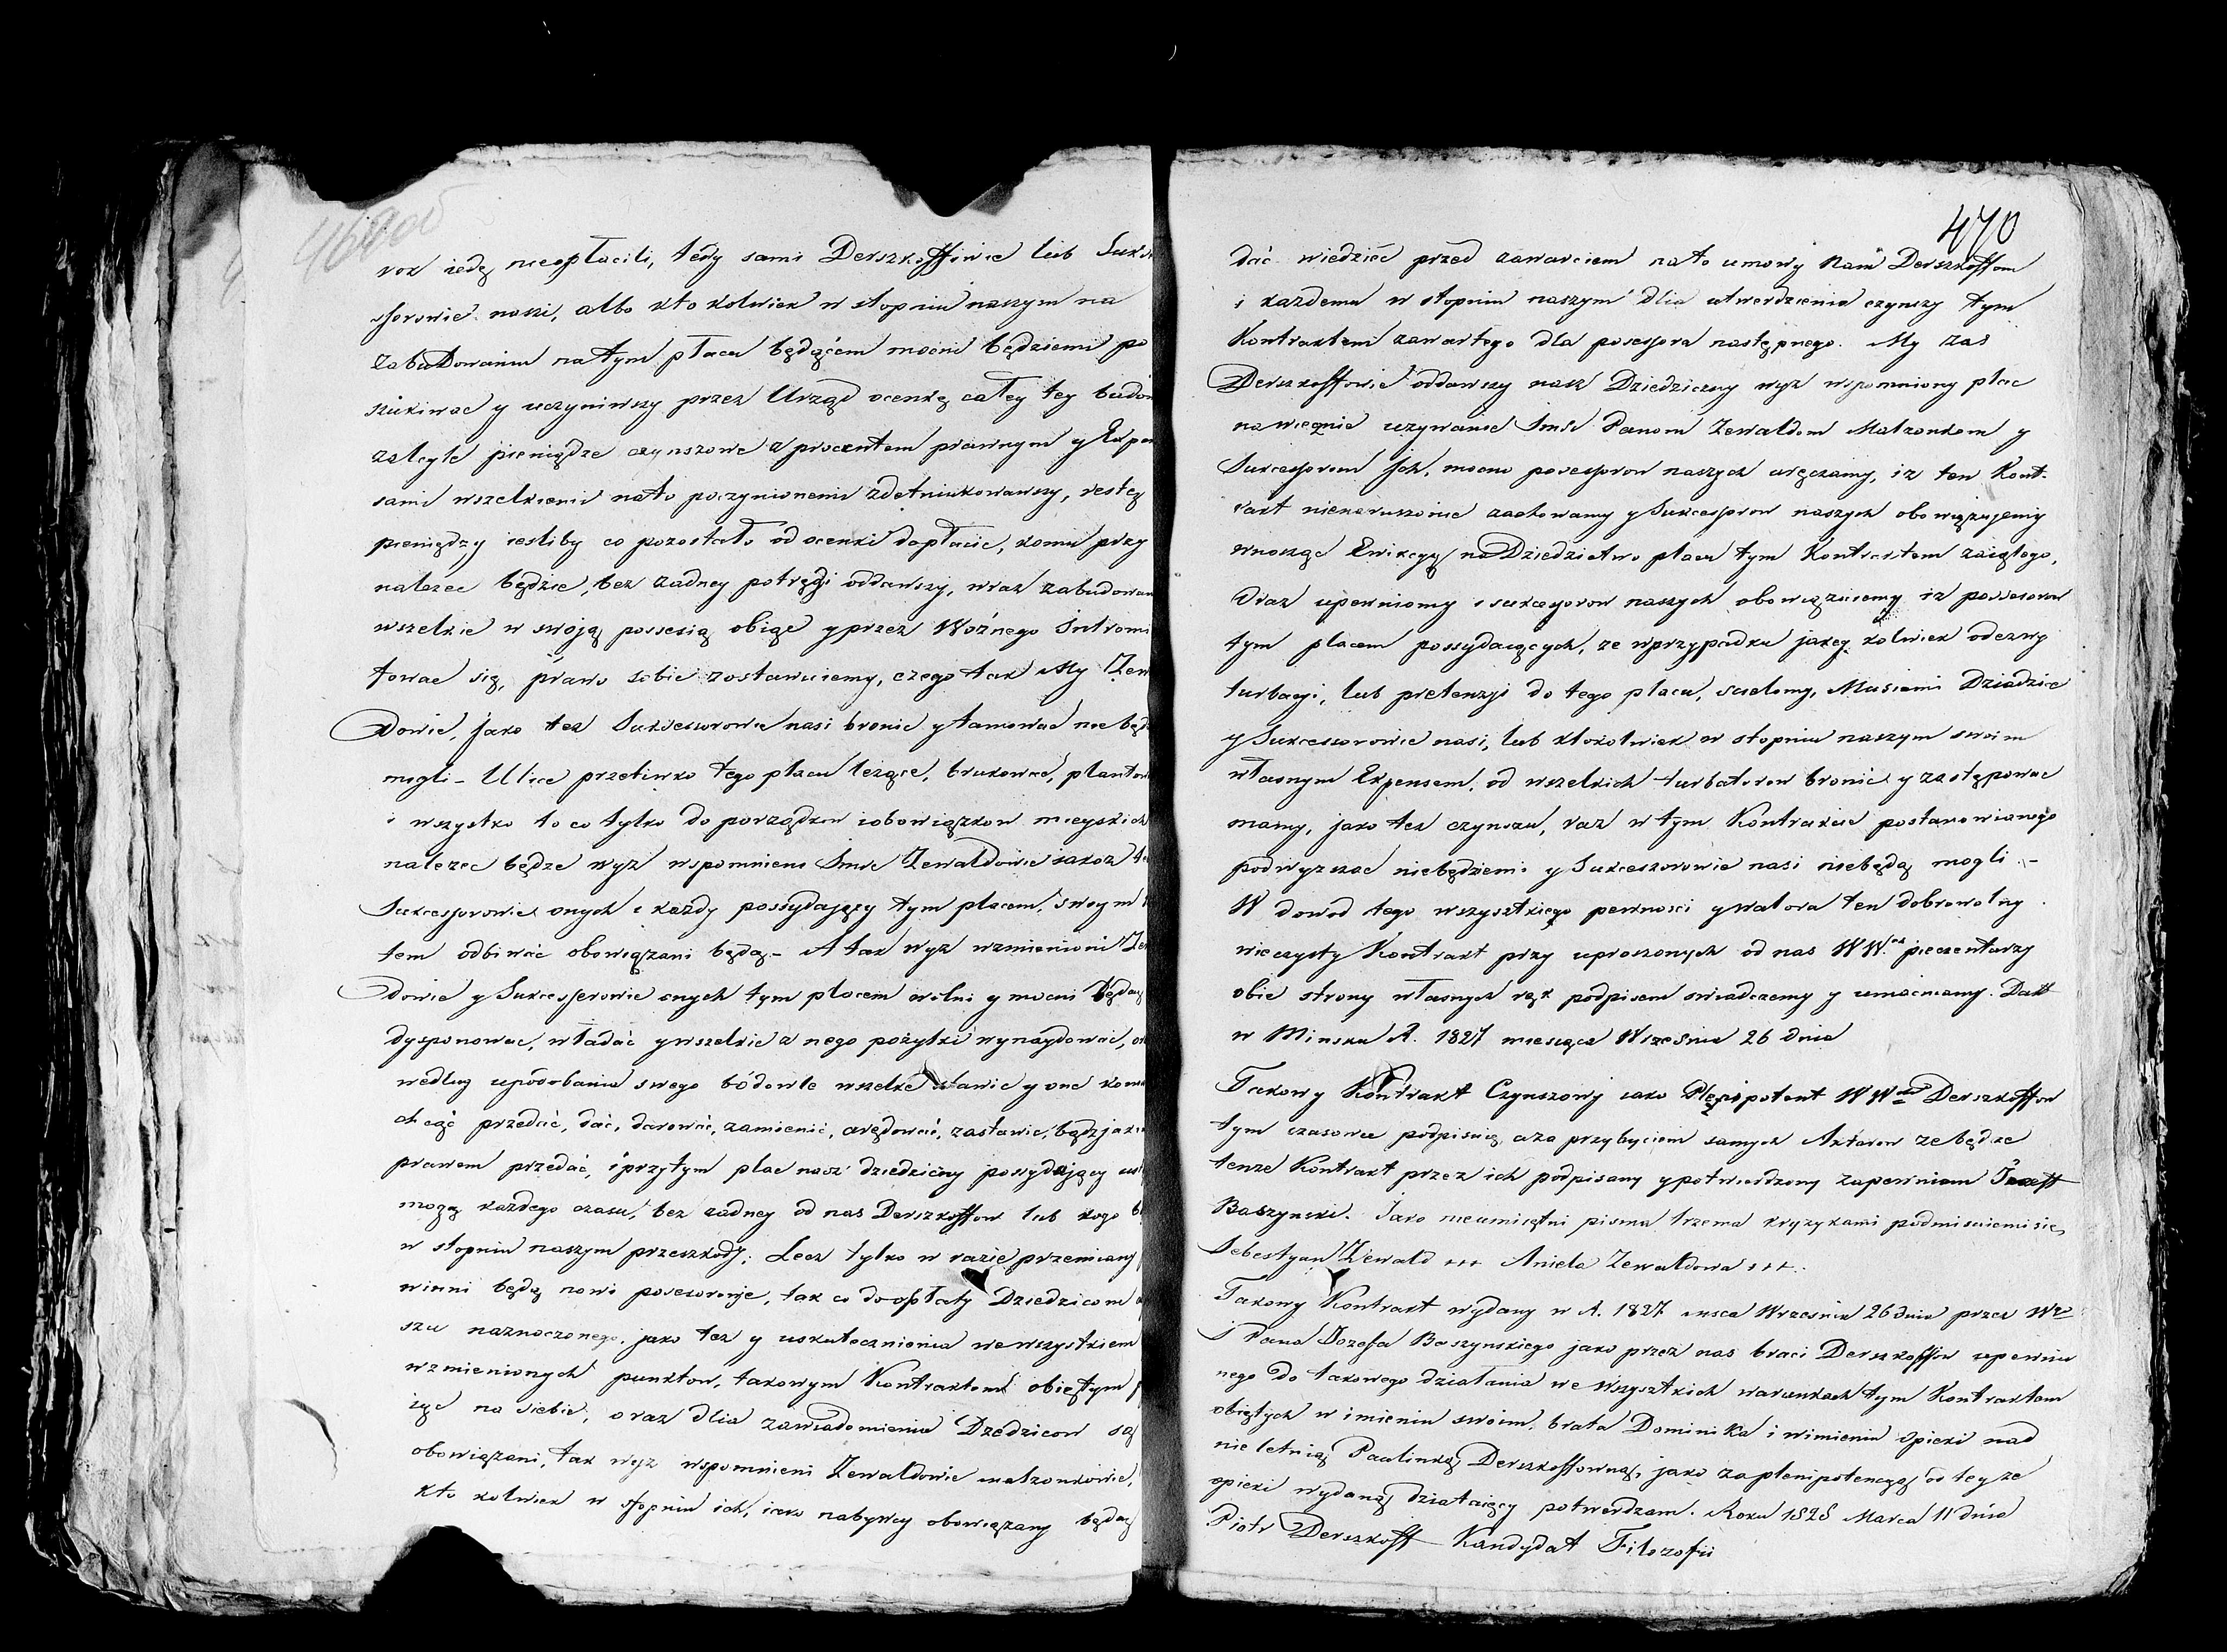 469 об
rok jedę nieopłacili, tedy sami Derszkoffowie lub Suk
ssorowie naszi, albo kto kolwiek w stopniu naszym na
zabudowaniu na tym placu będącem mocni będziemi po
szukiwać y uczyniwszy przez Urząd ocenkę całey tey budow
zaległe pieniądze czynszowe z procentem prawnym y Expen
sami wszelkiemi na to poczynionemi zdetruikowawszy, resztę
pieniędzy jesliby co pozostało od ocenki dopłacie, komu przy
nalezec będzie, bez zadney potrędzi oddawszy, wraz zabudowan
wszelkie w swoją possesią obiąc y przez Woźnego intromi
towac się, prawo sobie zostawuiemy, czego tak My Zew
Dowie, jako tez Sukcessorowie nasi bronic y tamować nie będ
mogli - Ulice przeciwko tego placu leżące, brukować, plantow
i wszystko to co tylko do porządkow i obowiązkow mieyskich
nalezec będze wyz wspomnieni Imć Zewaldowie jakoz te
Sukcessorowie onych i każdy possydający tym placem, swoym
tem odbiwać obowiązani będą - A tak wyz wzmienioni Ze
Dowie y Sukcessorowie onych tym placem wolni y mocni będą
dysponować, władać y wszelkie z nego pożytki wynaydować,
według upodobania swego bódowle wszelke stawic y one kom
chcąc przedać, dać, darować, zamienić, arędować, zastawic, bądz jaki
prawem przedać, i przytym plac nasz dziedziczny possydający
mogą każdego czasu, bez zadney od nas Derszkoffow lub kogo b
w stopniu naszym przeszkody; Lecz tylko w razie przemiany
winni będą nowi posesorowie, tak co do opłaty Dziedzicom
szu naznaczonego, jako tez y uskutecznienia we wszystkiem
wzmienionych punktow, takowym Kontraktem obiętym
iąc na siebie, oraz dlia zawiadomienia Dzedzicow są
obowiązani, tak wyz wspomnieni Zewaldowie małzonkowie,
kto kolwiek w stopniu ich, jako nabywcy obowiązany będą
470
dać wiedzieć przed zawarciem na to umowy Nam Derszkoffom
i kazdemu w stopniu naszym dlia utwerdzienia czynszy tym
Kontraktem zawartego dla posessora następnego. My zas
Derszkoffowie oddawszy nasz Dziedziczny wyz wspomniony plac
na wieczne uzywanie Imć Panom Zewaldom Małzonkom y
Sukcessorom Jch, mocno posessorow naszych uręczamy, iz ten Kont-
rakt nienaruszonie zachowamy y Sukcessorow naszych obowiązujemy
wnosząc Ewikcyę na Dziedzictwo placu tym Kontraktem zaiętego,
Oraz upewniamy i sukcessorow naszych obowiązuiemy iz possesorow
tym placem possydaiących, ze w przypadku jakey kolwiek odezwy
turbacyi, lub pretenzyi do tego placu, sadomy, Musiemi Dziedzice
y Sukcessorowie nasi, lub ktokolwiek w stopniu naszym swoim
własnym Expensem, od wszelkich turbatorow bronić y zastępowac
mamy, jako tez czynszu, raz w tym Kontrakcie postanowionego
podwyzszac niebędziemi y Sukcessorowie nasi niebędą mogli. -
W dowod tego wszysztkiego pewnosci y walora ten dobrowolny
wieczysty Kontrakt przy uproszonych od nas WW.ch pieczentarzy
obie strony własnych ręk podpisem swiadczemy y umacniamy. Datt
w Minsku R. 1827 miesiąca Wrzesnia 26 dnia
Takowy Kontrakt Czynszowy iako Plenipotent WWch Derszkoffow
tym czasowie podpisuię, a za przybyciem samych Aktorow ze będze
tenze Kontrakt przez ich podpisany y potwierdzony zapewniam Jozeff
Baszynski. Jako nieumiętni pisma trzema kryzykami podmisuiemi się
Sebestyan Zewald +++ Aniela Zewaldowa +++.
Takowy Kontrakt wydany w R. 1827 msca Wrzesnia 26 dnia przez W
J Pana Jozefa Baszynskiego jako przez nas braci Derszkoffow upewnio
nego do takowego działania we wszysztkich warunkach tym Kontraktem
obiętych w imieniu swoim, brata Dominika i wimieniu Opieki nad
nieletnią Paulinką Derszkoffowną, jako za plenipotencyą od teyze
opieki wydaną działaiący potwerdzam. Roku 1828 Marca 11 dnia
Piotr Derszkoff Kandydat Filozofii